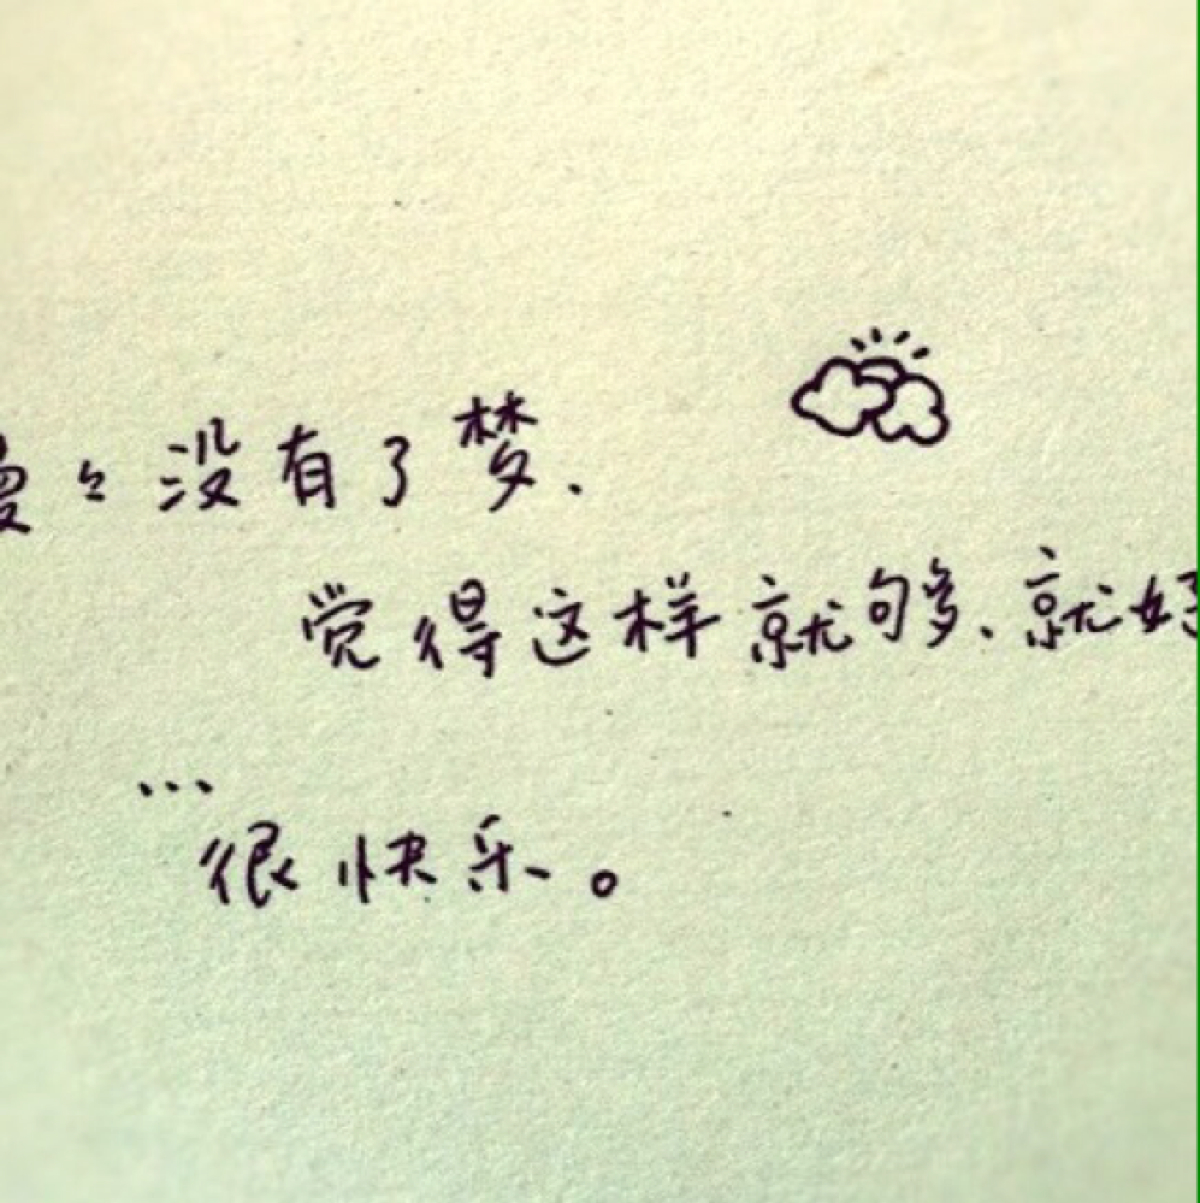 慢々没有了梦.
觉得这样就够、就好
...
很快乐。